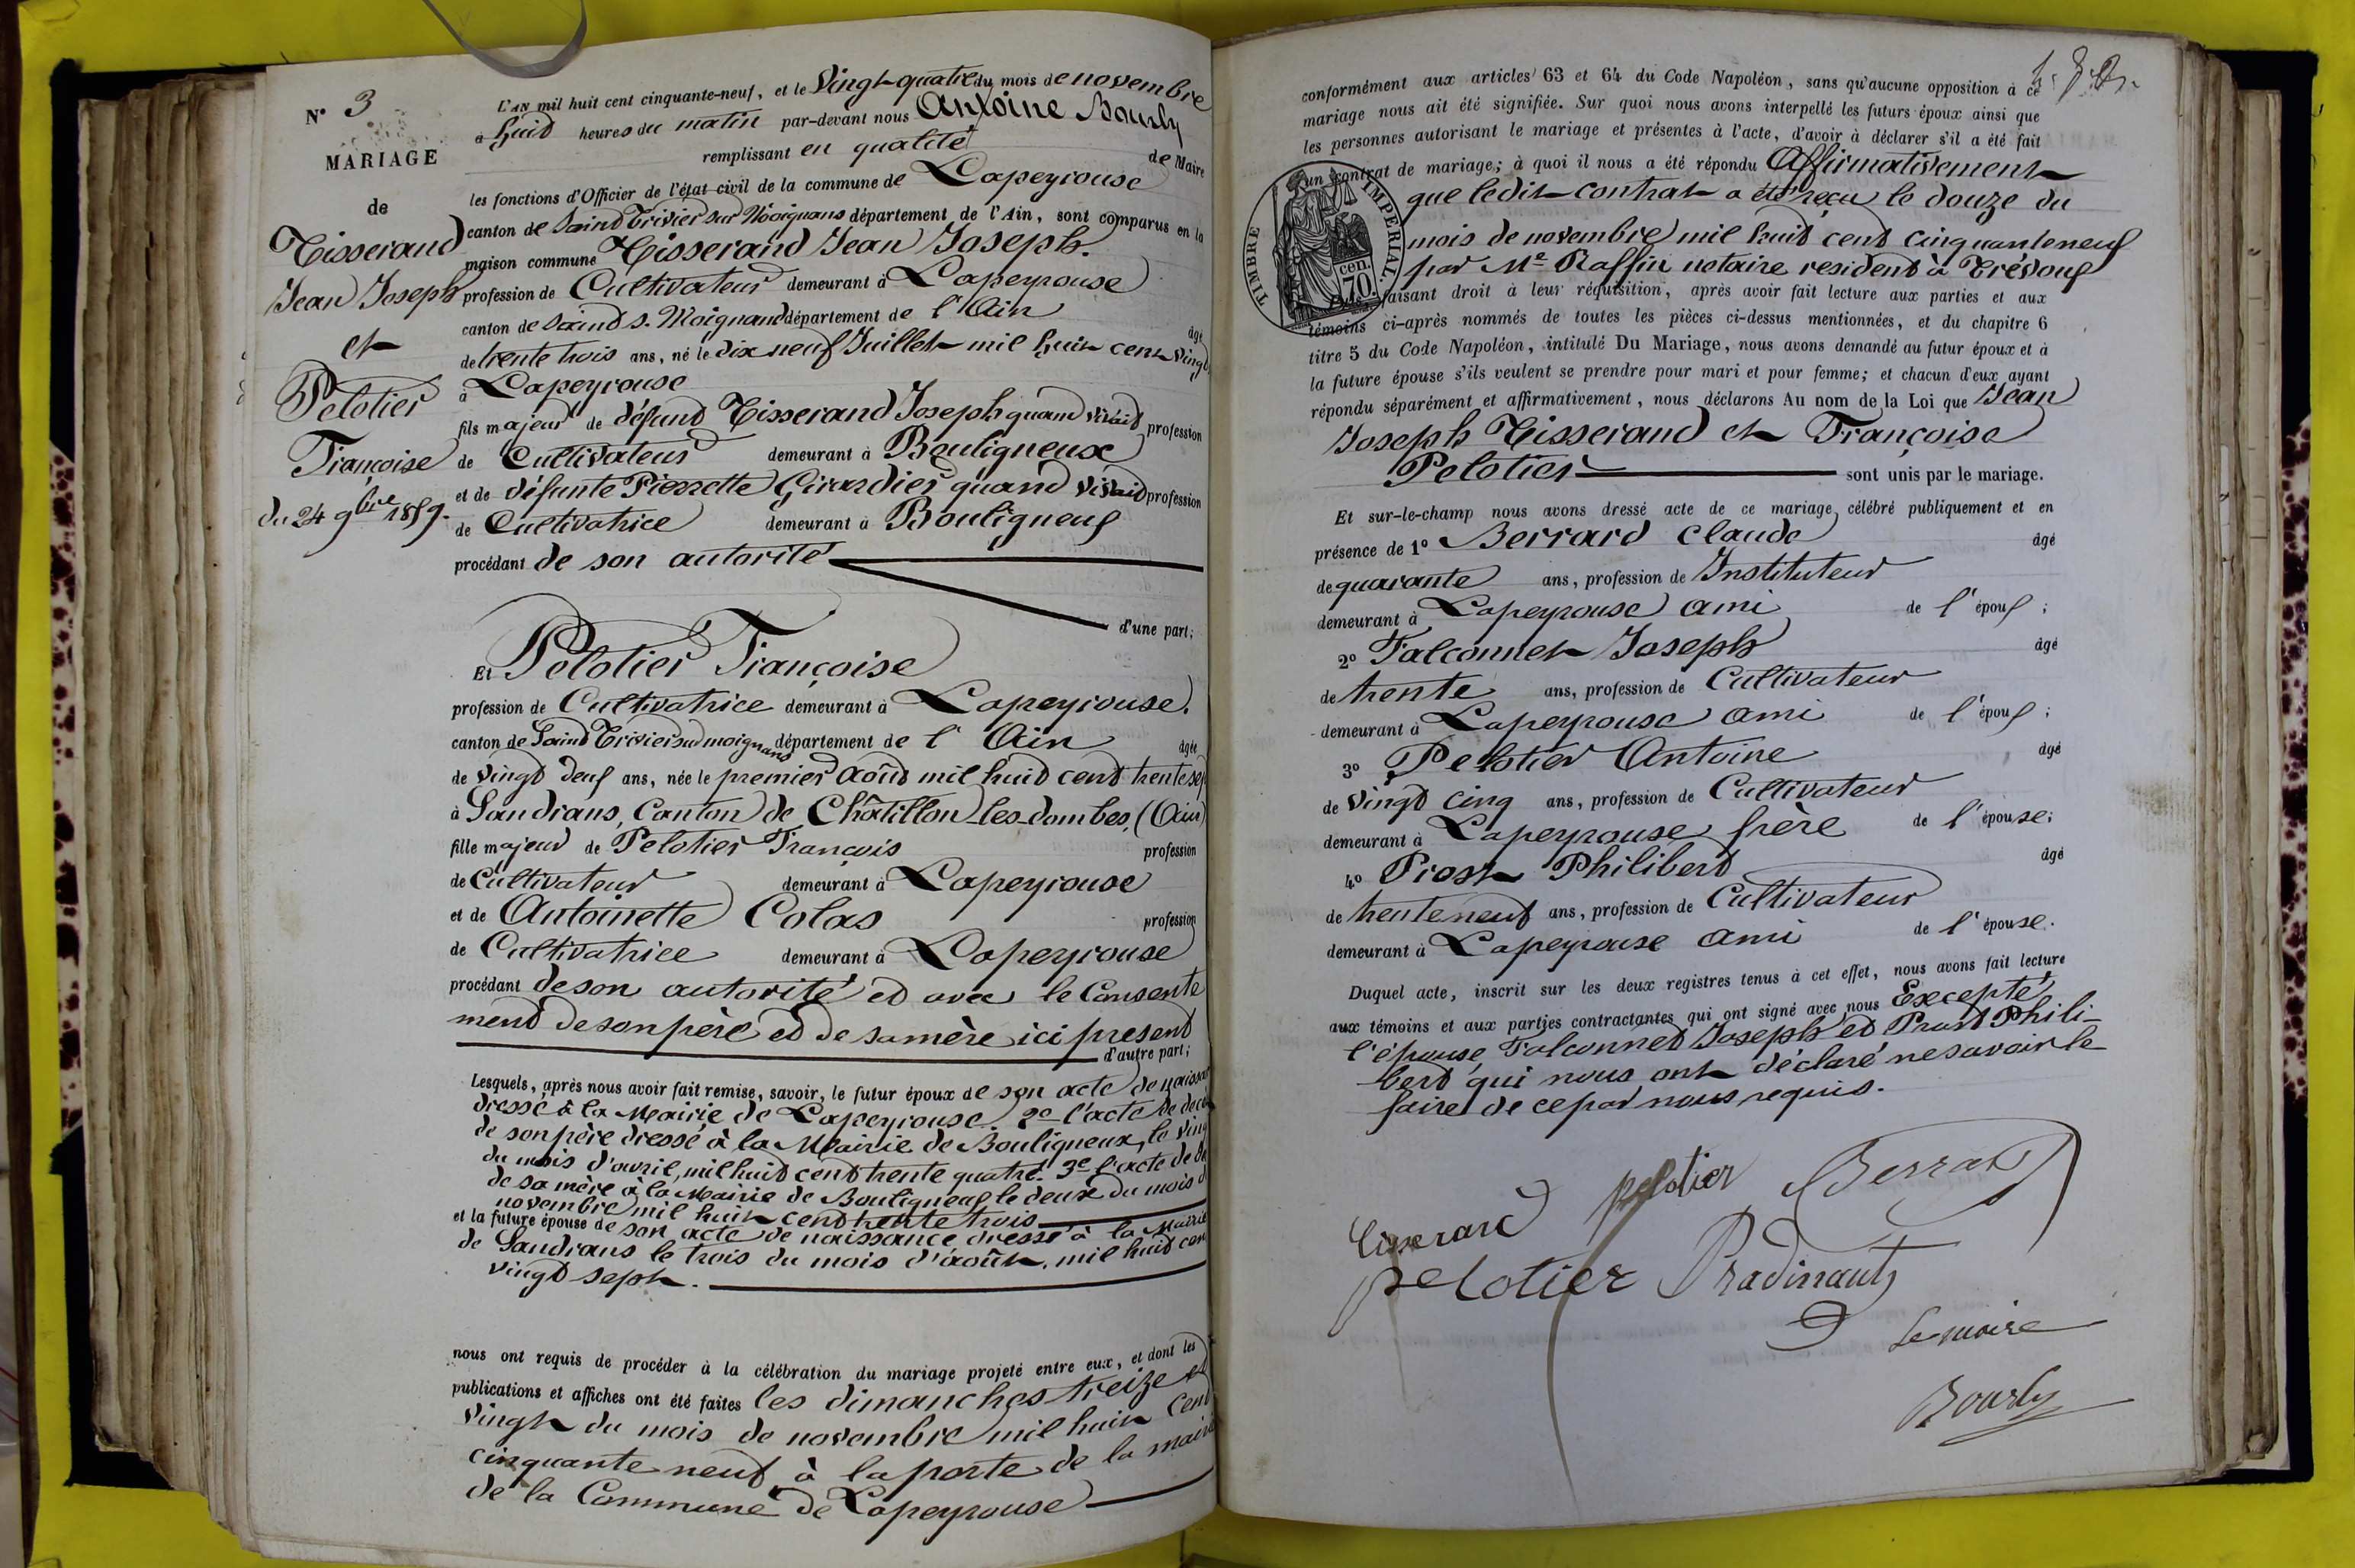 N° 3
MARIAGE
de
Tisserand
Jean Joseph
et
Pelotier
Françoise
du 24 9bre 1859.
L'AN mil huit cent cinquante-neuf, et le Vingt-quatre du mois de novembre
a huit heures du matin par-devant nous Antoine Bourly
remplissant en qualité de Maire
les fonctions d'Officier de l'état civil de la commune de Lapeyrouse
canton de Saint Trivier sur Moignans département de l'Ain, sont comparus en la
maison commune Tisserand Jean Joseph.
profession de Cultivateur demeurant à Lapeyrouse
canton de Saint s. Moignans département de l'Ain âgé
de trente trois ans, né le dix neuf Juillet mil huit cent vingt
à Lapeyrouse
fils majeur de défunt Tisserand Joseph quand vivait profession
de Cultivateur demeurant à Bouligneux
et de défunte Pierrette Girardier quand vivait profession
de Cultivatrice demeurant à Bouligneux
procédant de son autorité
d'une part;
Et Pelotier Françoise
profession de Cultivatrice demeurant à Lapeyrouse.
canton de Saint Trivier sur moignans département de l'Ain âgée
de vingt deux ans, née le premier Août mil huit cent trente sep
à Sandrans, Canton de Châtillon-les-dombes, (Ain)
fille majeur de Pelotier François profession
de Cultivateur demeurant à Lapeyrouse
et de Antoinette Colas profession
de Cultivatrice demeurant à Lapeyrouse
procédant de son autorité et avec le Consente
ment de son père et de sa mère ici présent
d'autre part;
Lesquels, après nous avoir fait remise, savoir, le futur époux de son acte de naissan
dressé à la Mairie de Lapeyrouse. 2e l'acte de décè
de son père dressé à la Mairie de Bouligneux, le ving
du mois d'avril, mil huit cent trente quatre. 3e l'acte de dé
de sa mère à la Mairie de Bouligneux le deux du mois d
novembre mil huit cent trente trois
et la future épouse de son acte de naissance dressé à la Mairie
de Sandrans le trois du mois d'août, mil huit cen
vingt sept.
nous ont requis de procéder à la célébration du mariage projeté entre eux, et dont les
publications et affiches ont été faites les dimanches treize et
vingt du mois de novembre mil huit cent
cinquante neuf, à la porte de la mairie
de la Commune de Lapeyrouse
conformément aux articles 63 et 64 du Code Napoléon, sans qu'aucune opposition à ce
mariage nous ait été signifiée. Sur quoi nous avons interpellé les futurs époux ainsi que
les personnes autorisant le mariage et présentes à l'acte, d'avoir à déclarer s'il a été fait
un contrat de mariage; à quoi il nous a été répondu Affirmativement
que ledit contrat a été reçu le douze du
mois de novembre mil huit cent cinquante neuf
par Me Raffin notaire résident à Trévoux
TIMBRE IMPERIAL.
cen.
70.
faisant droit à leur réquisition, après avoir fait lecture aux parties et aux
témoins ci-après nommés de toutes les pièces ci-dessus mentionnées, et du chapitre 6
titre 5 du Code Napoléon, intitulé Du Mariage, nous avons demandé au futur époux et à
la future épouse s'ils veulent se prendre pour mari et pour femme; et chacun d'eux ayant
répondu séparément et affirmativement, nous déclarons Au nom de la Loi que Jean
Joseph Tisserand et Françoise
Pelotier sont unis par le mariage.
Et sur-le-champ nous avons dressé acte de ce mariage célébré publiquement et en
présence de 1° Berrard Claude âgé
de quarante ans, profession de Instituteur
demeurant à Lapeyrouse ami de l'époux;
2° Falconnet Joseph âgé
de trente ans, profession de Cultivateur
demeurant à Lapeyrouse ami de l'époux;
3° Pelotier Antoine âgé
de vingt cinq ans, profession de Cultivateur
demeurant à Lapeyrouse frère de l'épouse;
4° Prost Philibert âgé
de trente neuf ans, profession de Cultivateur
demeurant à Lapeyrouse ami de l'épouse.
Duquel acte, inscrit sur les deux registres tenus à cet effet, nous avons fait lecture
aux témoins et aux parties contractantes qui ont signé avec nous Excepté
l'épouse, Falconnet Joseph et Prost Phili-
bert qui nous ont déclaré ne savoir le
faire de ce par nous requis.
tisserand pelotier Berrard
pelotier Pradinaut
Le maire
Bourly